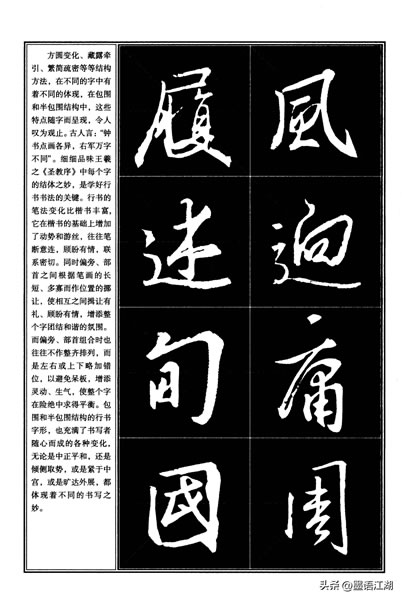 方圆变化、藏露牵
引、繁简疏密等等结构
方法，在不同的字中有
着不同的体现，在包围
和半包围结构中，这些
特点随字而呈现，令人
叹为观止。古人言：“钟
书点画各异，右军万字
不同”。细细品味王羲
之《圣教序》中每个字
的结体之妙，是学好行
书书法的关键。行书的
笔法变化比楷书丰富，
它在楷书的基础上增加
了动势和游丝，往往笔
断意连，顾盼有情，联
系密切。同时偏旁、部
首之间根据笔画的长
短、多寡而作位置的挪
让，使相互之间揖让有
礼、顾盼有情，增添整
个字团结和谐的氛围。
而偏旁、部首组合时也
往往不作整齐排列，而
是左右或上下略加错
位，以避免呆板，增添
灵动、生气，使整个字
在险绝中求得平衡。包
围和半包围结构的行书
字形，也充满了书写者
随心而成的各种变化，
无论是中正平和，还是
倾侧取势，或是紧于中
宫，或是旷达外展，都
体现着不同的书写之
妙。
風迥庸周
履述旬國
头条 @墨语江湖